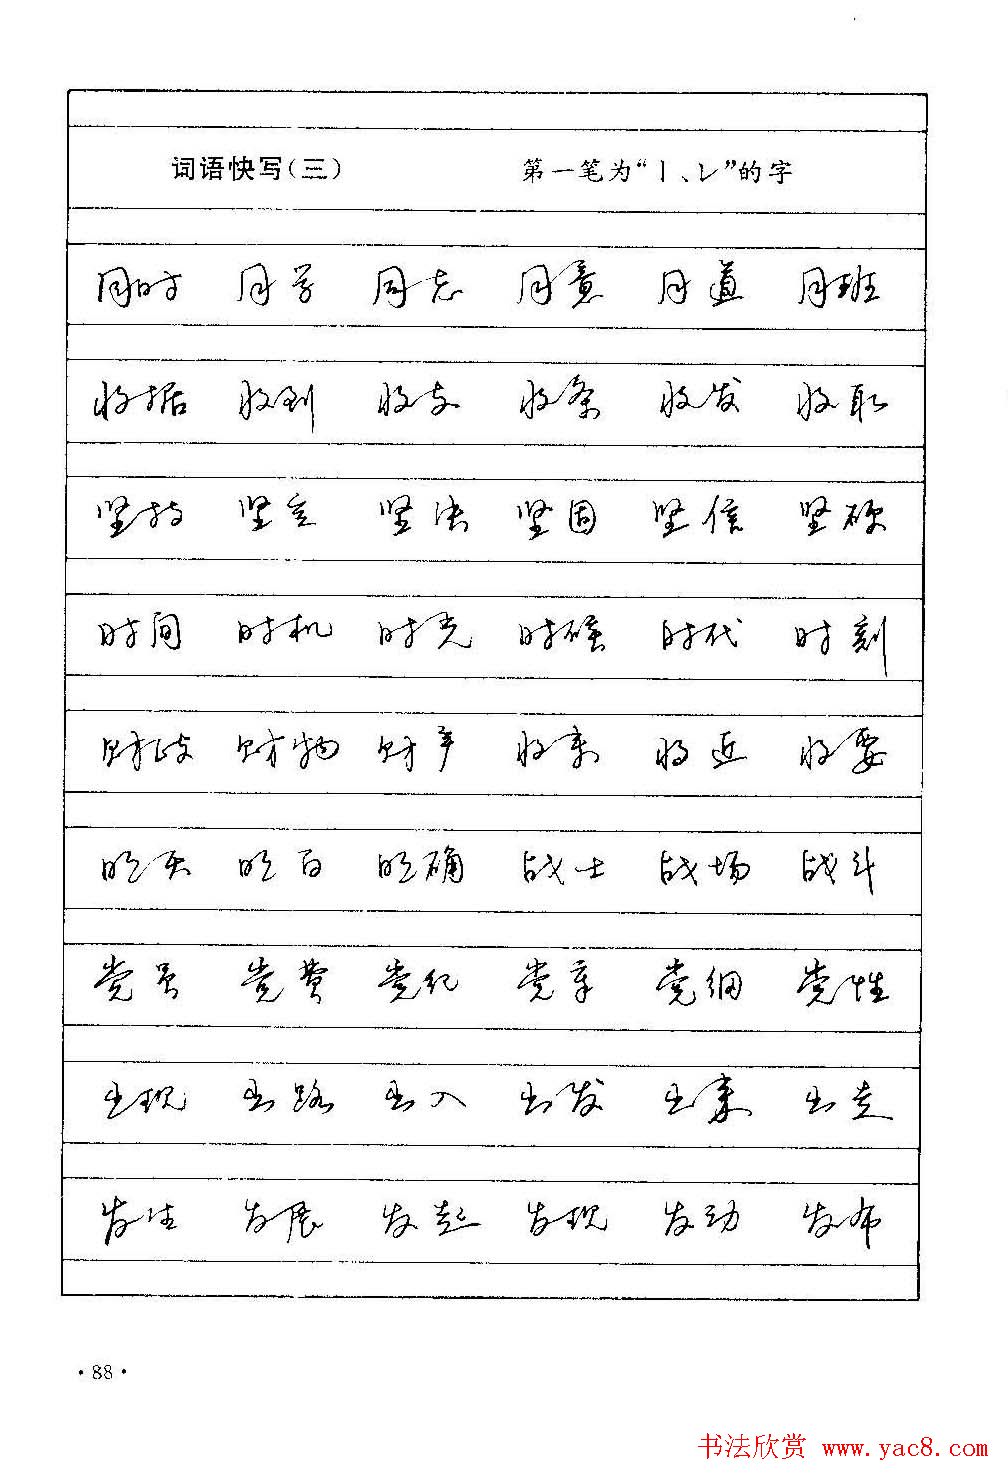 词语快写(三) 第一笔为“丨、ㄴ”的字
同时 同学 同志 同意 同道 同班
收据 收到 收支 收条 收发 收取
坚持 坚定 坚决 坚固 坚信 坚硬
时间 时机 时光 时碴 时代 时刻
财政 财物 财产 将来 将近 将要
明天 明白 明确 战士 战场 战斗
党员 党费 党纪 党章 党纲 党性
出现 出路 出入 出发 出来 出走
发生 发展 发起 发现 发动 发布
·88·
书法欣赏 www.yac8.com